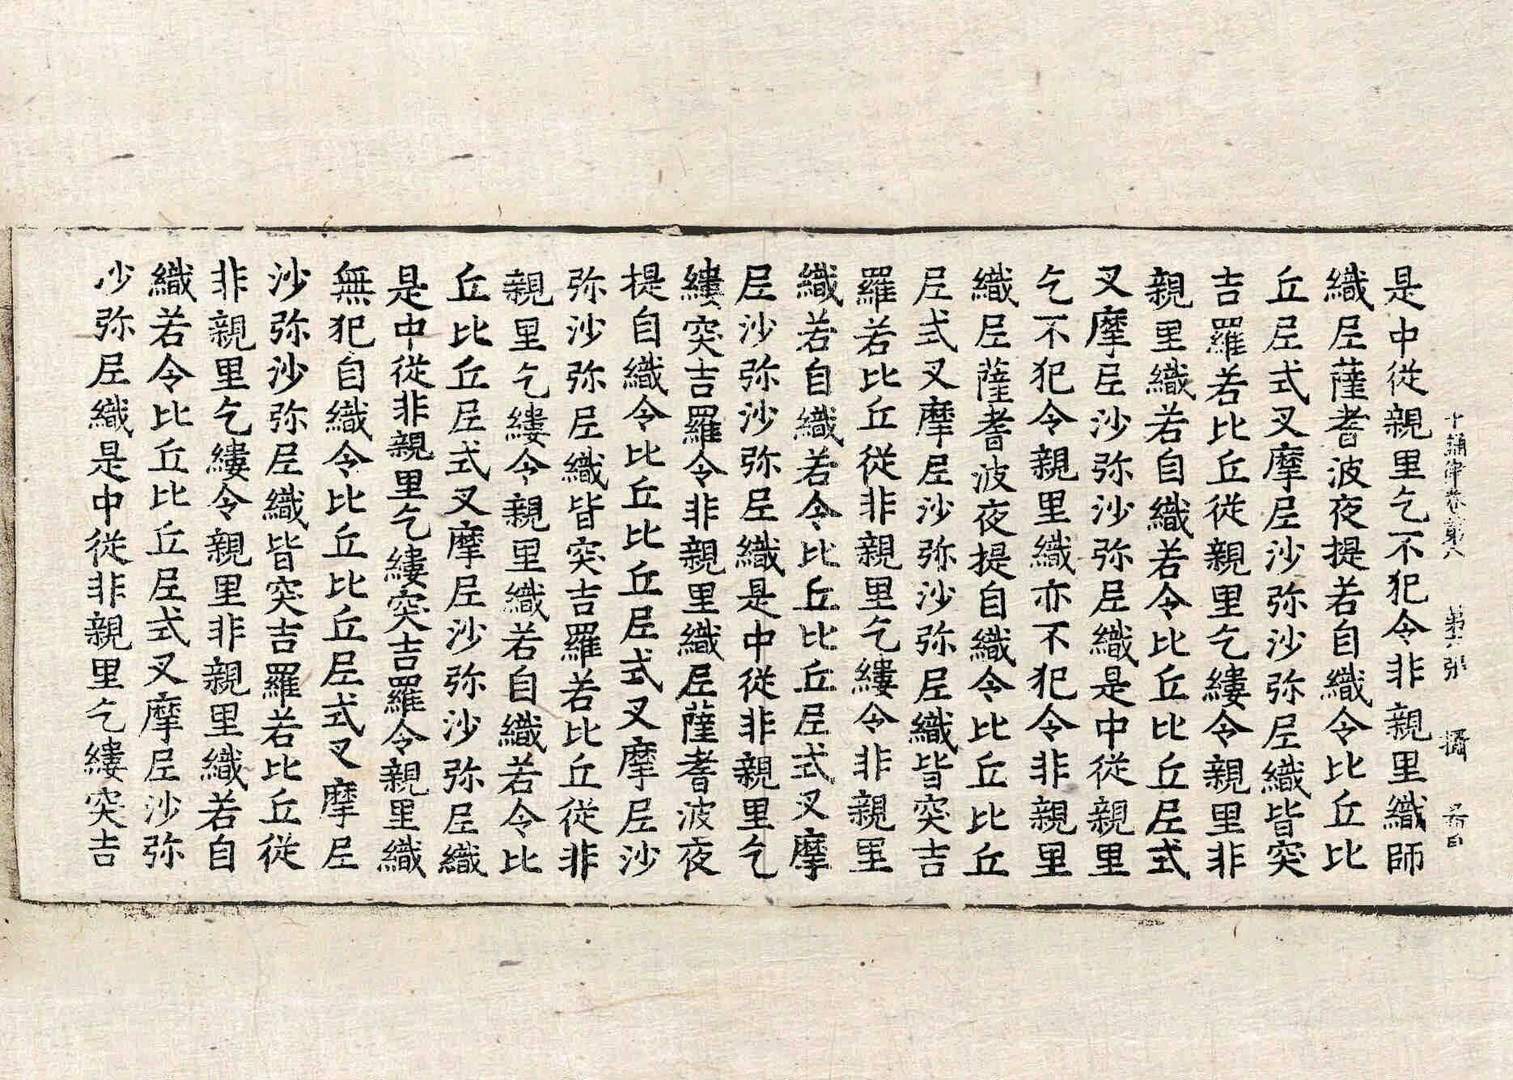 十誦律卷第八　第六張　攝
是中從親里乞不犯令非親里織師
織尼薩耆波夜提若自織令比丘比
丘尼式叉摩尼沙弥沙弥尼織皆突
吉羅若比丘從親里乞縷令親里非
親里織若自織若令比丘比丘尼式
叉摩尼沙弥沙弥尼織是中從親里
乞不犯令親里織亦不犯令非親里
織尼薩耆波夜提自織令比丘比丘
尼式叉摩尼沙弥沙弥尼織皆突吉
羅若比丘從非親里乞縷令非親里
織若自織若令比丘比丘尼式叉摩
尼沙弥沙弥尼織是中從非親里乞
縷突吉羅令非親里織尼薩耆波夜
提自織令比丘比丘尼式叉摩尼沙
弥沙弥尼織皆突吉羅若比丘從非
親里乞縷令親里織若自織若令比
丘比丘尼式叉摩尼沙弥沙弥尼織
是中從非親里乞縷突吉羅令親里織
無犯自織令比丘比丘尼式叉摩尼
沙弥沙弥尼織皆突吉羅若比丘從
非親里乞縷令親里非親里織若自
織若令比丘比丘尼式叉摩尼沙弥
沙弥尼織是中從非親里乞縷突吉